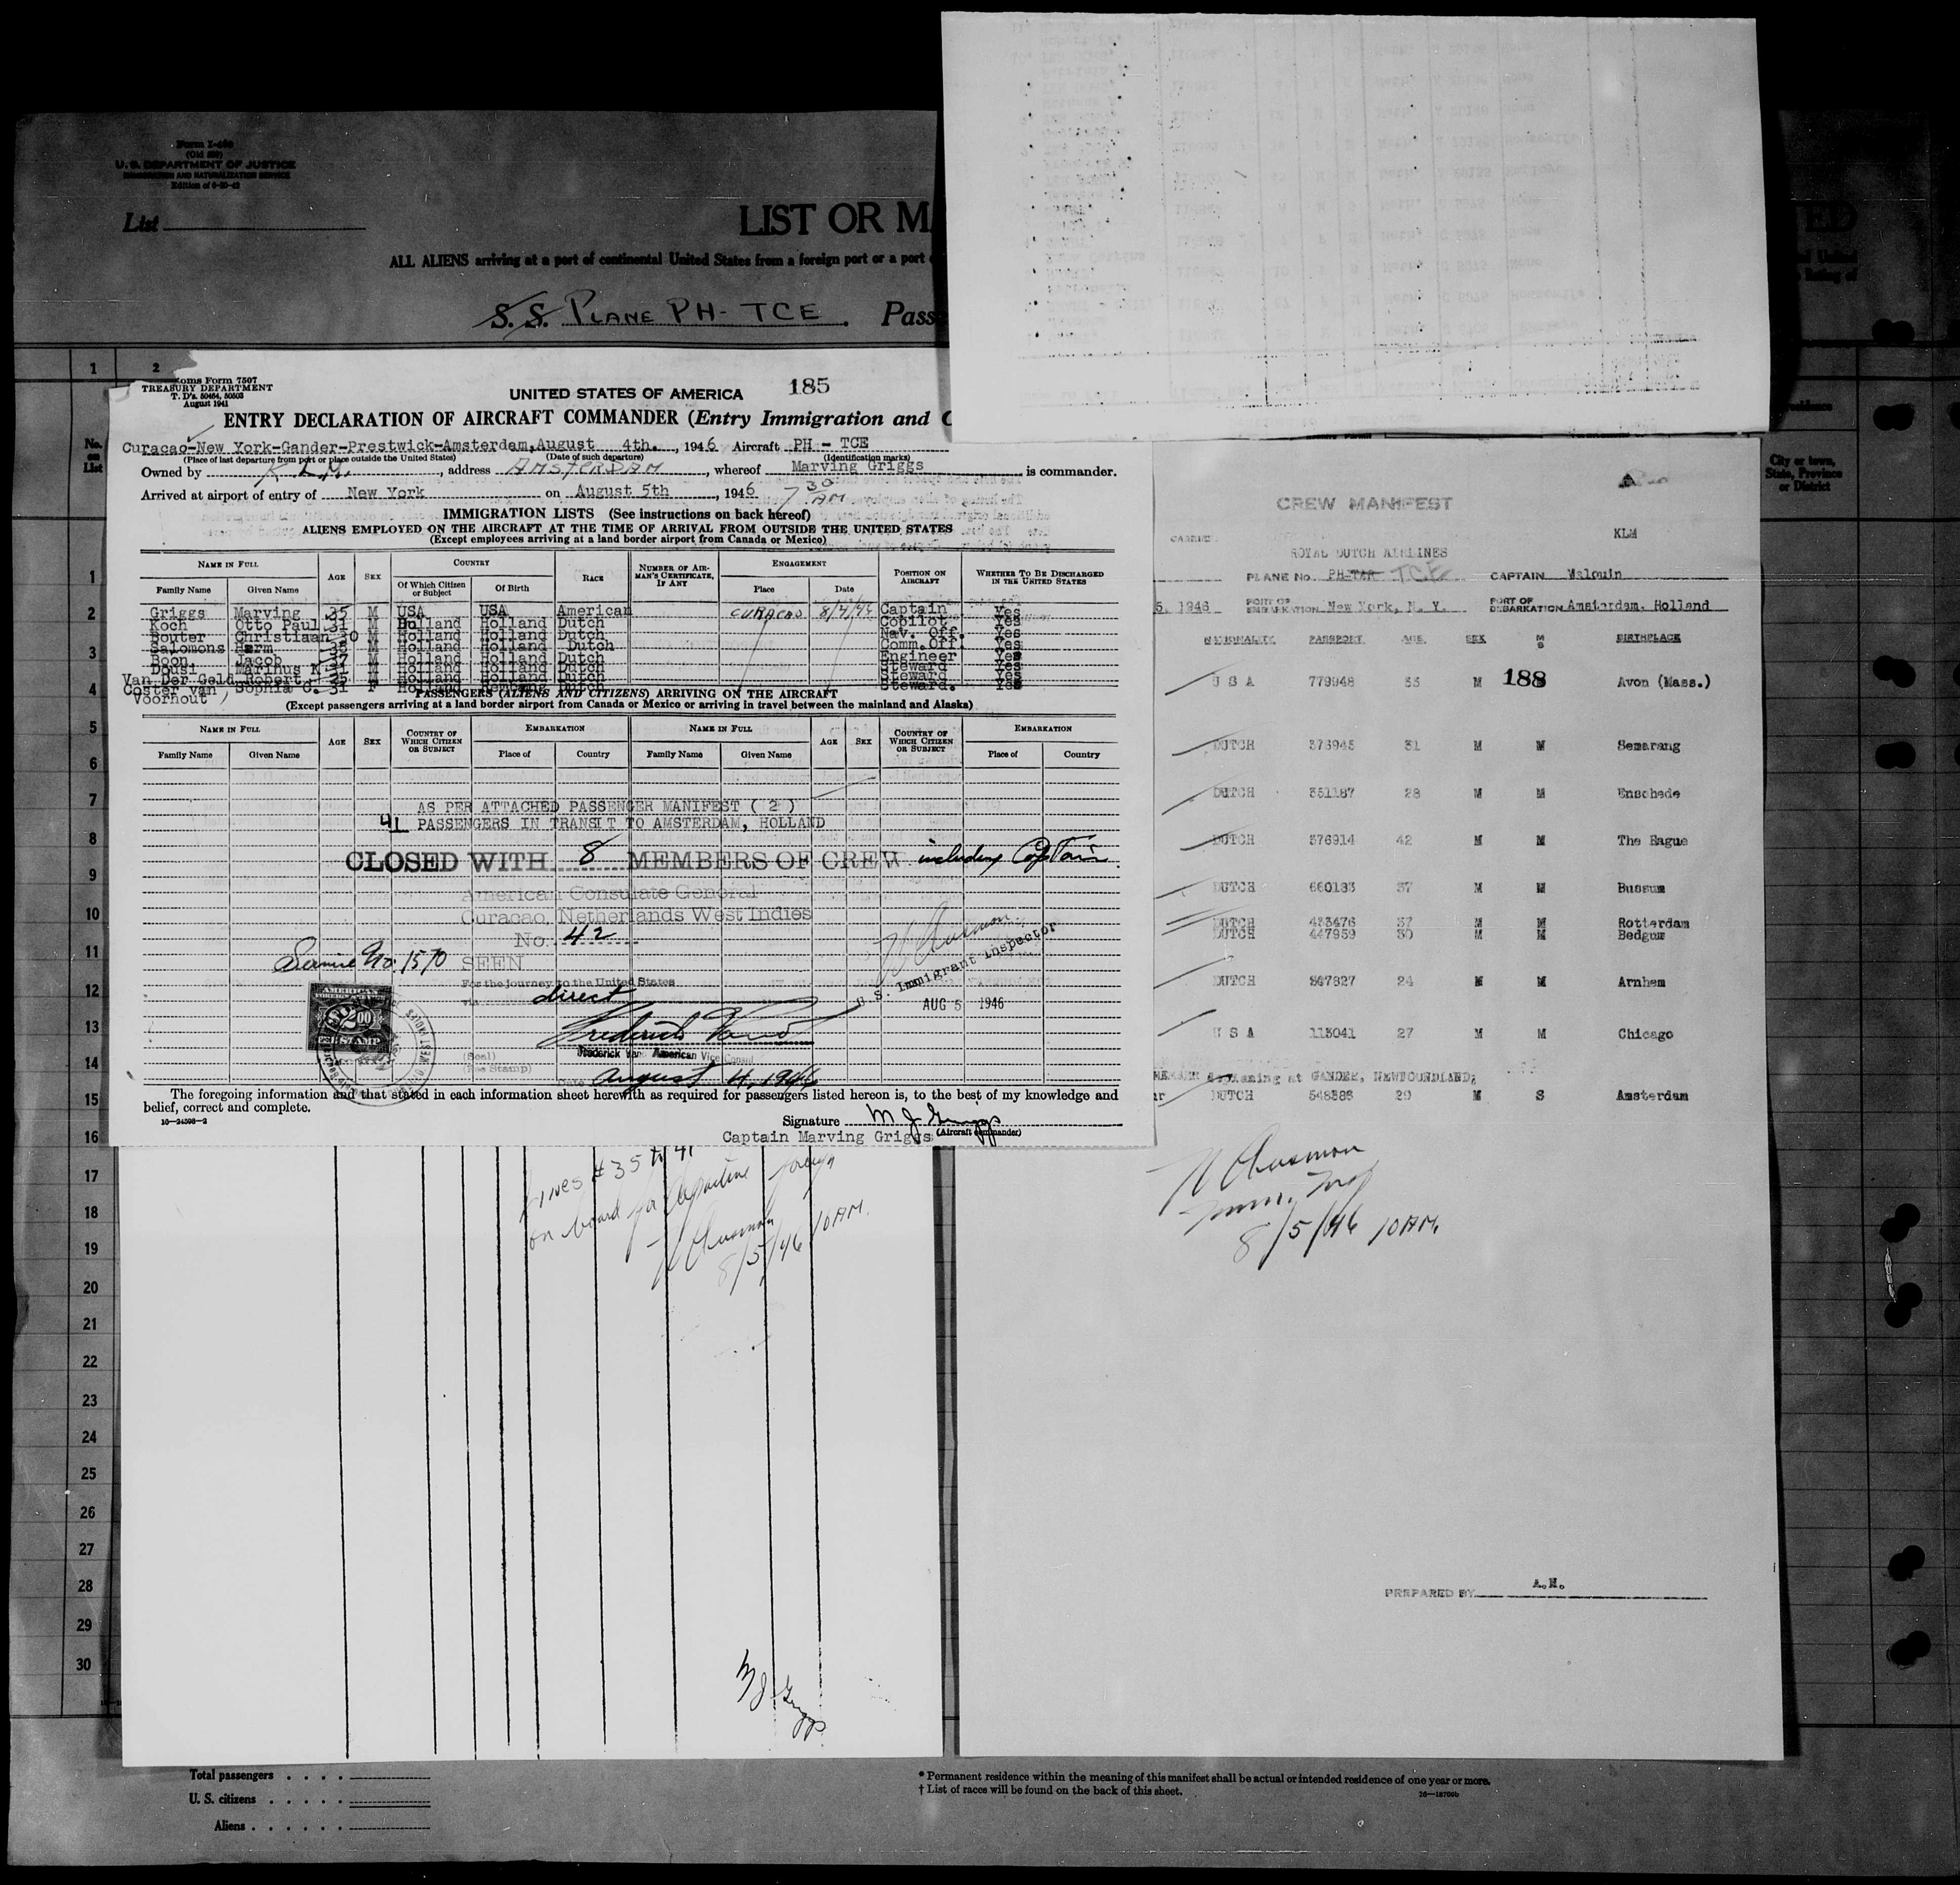 Form I-
U. S. DEPARTMENT OF JUSTICE
IMMIGRATION AND NATURALIZATION SERVICE
List
LIST OR MA
ED
ALL ALIENS arriving at a port of continental United States from a foreign port or a port
S. S. PLANE PH-TCE. Pass
1 2
oms Form 7507
TREASURY DEPARTMENT
T. D's. 50464, 50503
August 1941
UNITED STATES OF AMERICA 185
ENTRY DECLARATION OF AIRCRAFT COMMANDER (Entry Immigration and C
Curacao-New York-Gander-Prestwick-Amsterdam, August 4th. , 1946 Aircraft PH - TCE
(Place of last departure from port or place outside the United States) (Date of such departure) (Identification marks)
Owned by K.L.M. , address AMSTERDAM , whereof Marving Griggs is commander.
Arrived at airport of entry of New York on August 5th , 1946 7 30 AM
IMMIGRATION LISTS (See instructions on back hereof)
ALIENS EMPLOYED ON THE AIRCRAFT AT THE TIME OF ARRIVAL FROM OUTSIDE THE UNITED STATES
(Except employees arriving at a land border airport from Canada or Mexico)
NAME IN FULL AGE SEX COUNTRY RACE NUMBER OF AIRMAN'S CERTIFICATE, IF ANY ENGAGEMENT POSITION ON AIRCRAFT WHETHER TO BE DISCHARGED IN THE UNITED STATES
Family Name Given Name Of Which Citizen or Subject Of Birth Place Date
Griggs Marving 35 M USA USA American CURACAO Captain Yes
Koch Otto Paul 31 M Holland Holland Dutch Copilot Yes
Bouter Christiaan 30 M Holland Holland Dutch Nav. Off. Yes
Salomons Harm M Holland Holland Dutch Comm.Off. Yes
Boon, Jacob 37 M Holland Holland Dutch Engineer Yes
Dousi Marinus K. M Holland Holland Dutch Steward Yes
Van Der Geld Robert M Holland Holland Dutch Steward Yes
Coster van Voorhout, Sophia C. 31 F Holland Dutch Steward. Yes
PASSENGERS (ALIENS AND CITIZENS) ARRIVING ON THE AIRCRAFT
(Except passengers arriving at a land border airport from Canada or Mexico or arriving in travel between the mainland and Alaska)
NAME IN FULL AGE SEX COUNTRY OF WHICH CITIZEN OR SUBJECT EMBARKATION NAME IN FULL AGE SEX COUNTRY OF WHICH CITIZEN OR SUBJECT EMBARKATION
Family Name Given Name Place of Country Family Name Given Name Place of Country
AS PER ATTACHED PASSENGER MANIFEST ( 2 )
41 PASSENGERS IN TRANSIT TO AMSTERDAM, HOLLAND
CLOSED WITH 8 MEMBERS OF CREW including Captain
American Consulate General
Curacao, Netherlands West Indies
No. 42
Service No. 1570 SEEN
For the journey to the United States
via direct
U. S. Immigrant Inspector
AUG 5 1946
AMERICAN
FOREIGN SERVICE
2.00
FEE STAMP
Frederick American Vice Consul
(Seal)
(Fee Stamp)
Date August 4, 1946
The foregoing information and that stated in each information sheet herewith as required for passengers listed hereon is, to the best of my knowledge and
belief, correct and complete.
Signature M J Griggs
(Aircraft commander)
Captain Marving Griggs
16—24598-2
CREW MANIFEST
KLM
CARRIER
ROYAL DUTCH AIRLINES
PLANE No. PH-TAR TCE CAPTAIN Malouin
5, 1946 PORT OF EMBARKATION New York, N. Y. PORT OF DEBARKATION Amsterdam, Holland
NATIONALITY PASSPORT AGE SEX M S BIRTHPLACE
U S A 779948 33 M 188 Avon (Mass.)
DUTCH 373945 31 M M Semarang
DUTCH 351187 28 M M Enschede
DUTCH 576914 42 M M The Hague
DUTCH 660183 37 M M Bussum
DUTCH 433476 37 M M Rotterdam
DUTCH 447959 30 M M Bedgum
DUTCH 547827 24 M M Arnhem
U S A 113041 27 M M Chicago
deplaning at GANDER, NEWFOUNDLAND;
DUTCH 548386 29 M S Amsterdam
8/5/46 10AM.
PREPARED BY A.H.
Lines #35 to 41
on board for departure foreign
8/5/46 10AM.
M J Griggs
No. on List
1
2
3
4
5
6
7
8
9
10
11
12
13
14
15
16
17
18
19
20
21
22
23
24
25
26
27
28
29
30
City or town, State, Province or District
Total passengers
U. S. citizens
Aliens
* Permanent residence within the meaning of this manifest shall be actual or intended residence of one year or more.
† List of races will be found on the back of this sheet.